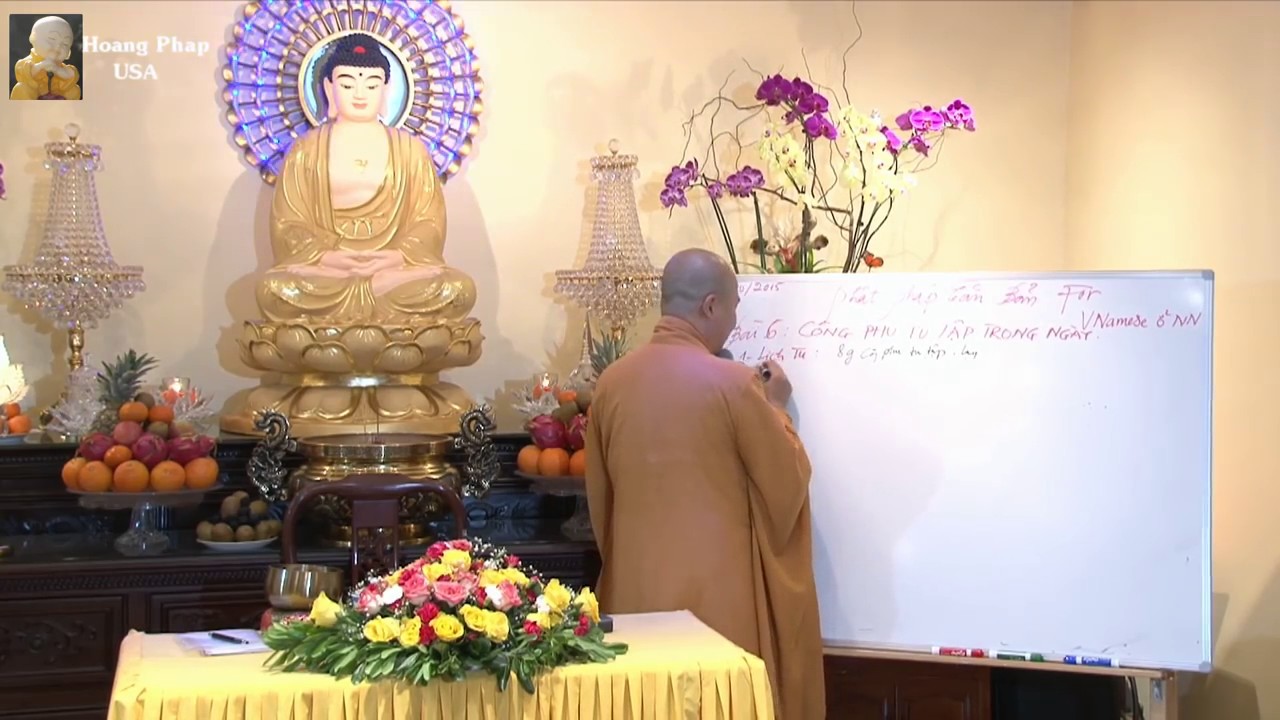 Hoang Phap
USA
0/2015
phật pháp căn bản For
VNamese ở NN
Bài 6: CÔNG PHU TU TẬP TRONG NGÀY.
1- Lịch Tu: 8g